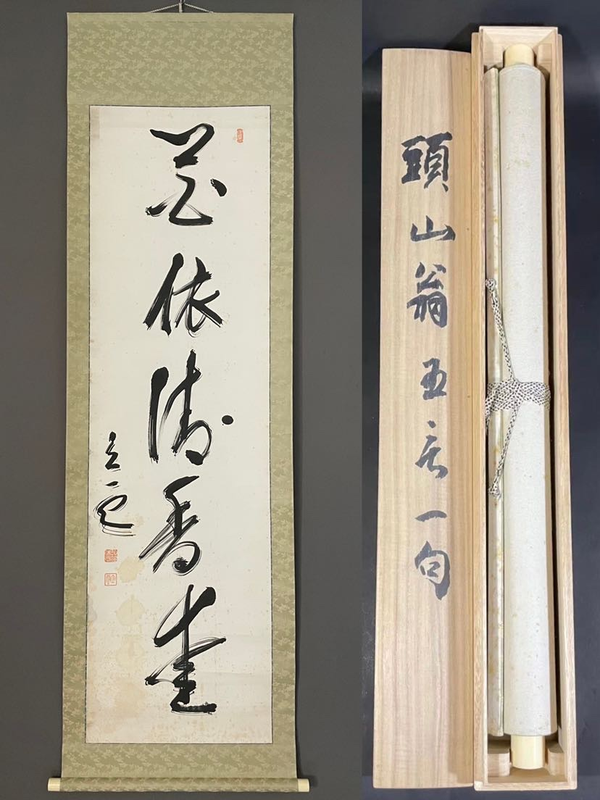 花依清香愛
立雲
頭山翁五言一句